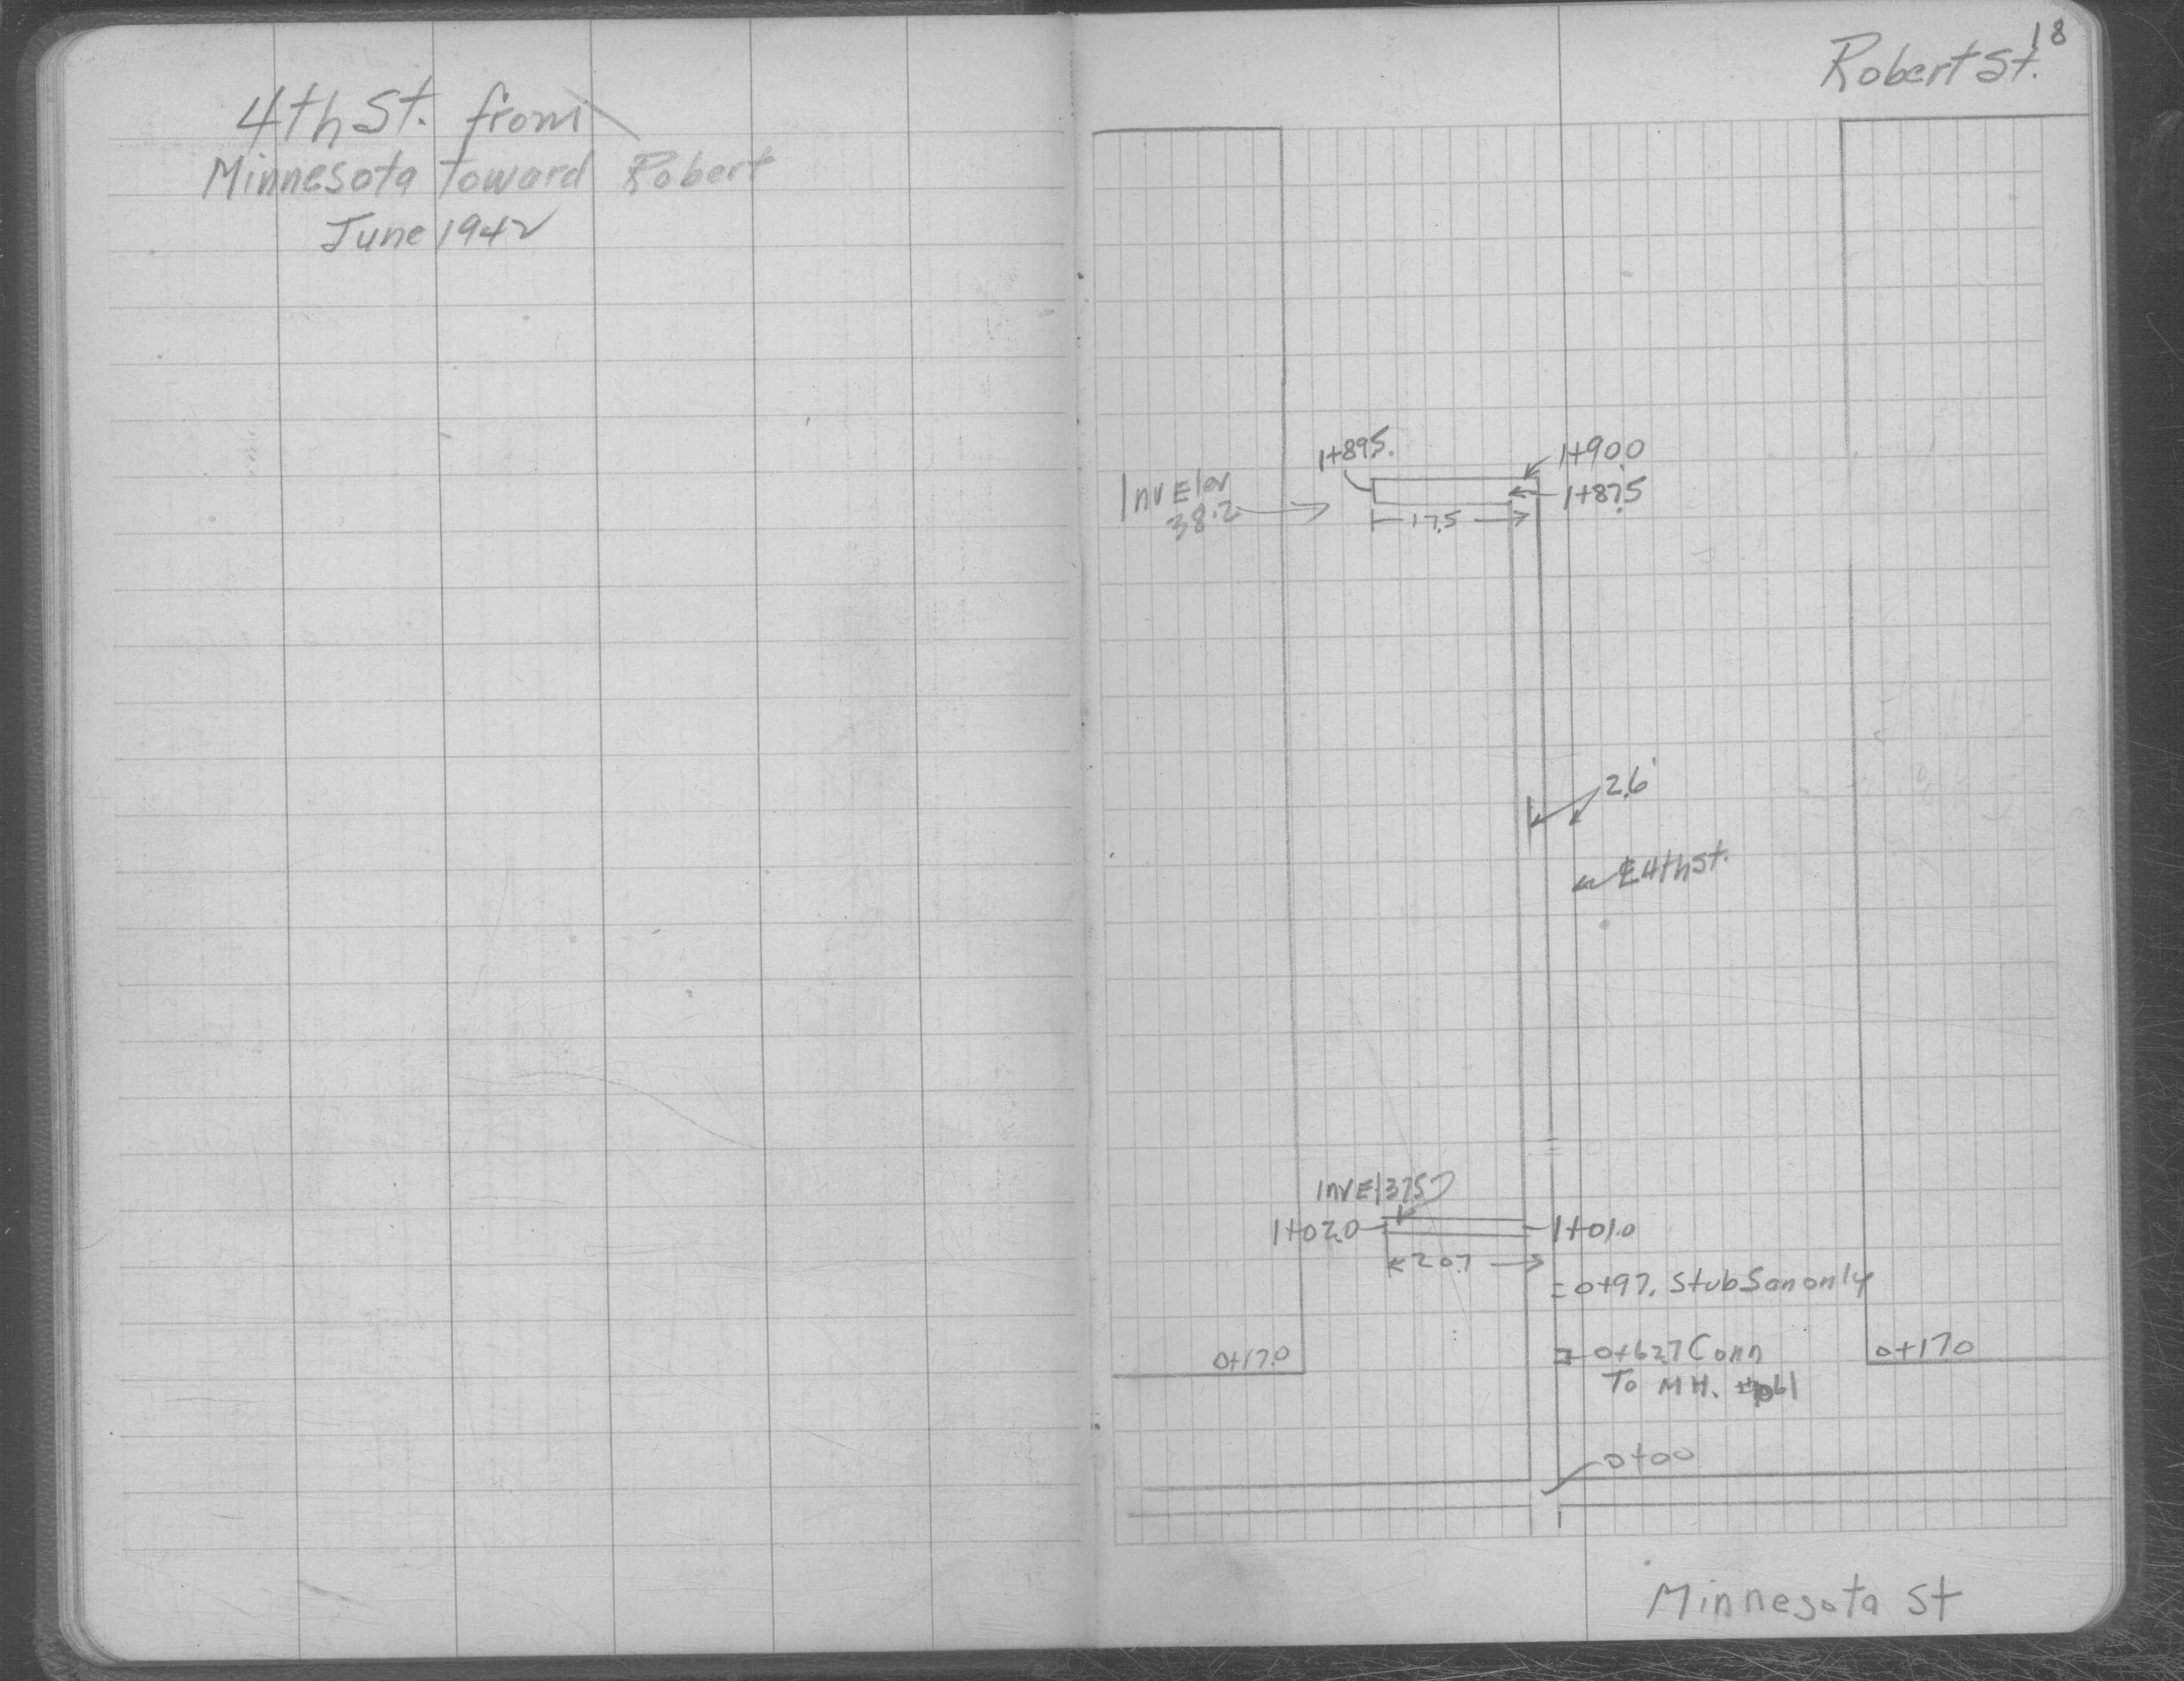 4th St. from
Minnesota toward Robert
June 1942
18
Robert St.
1+89.5
1+90.0
Inv Elev
38.2
1+87.5
17.5
2.6'
℄ 4th St.
Inv El 37.5
1+02.0
1+01.0
20.7
0+97. Stub San only
0+17.0
0+62.7 Conn
0+17.0
To M H.
0+00
Minnesota St